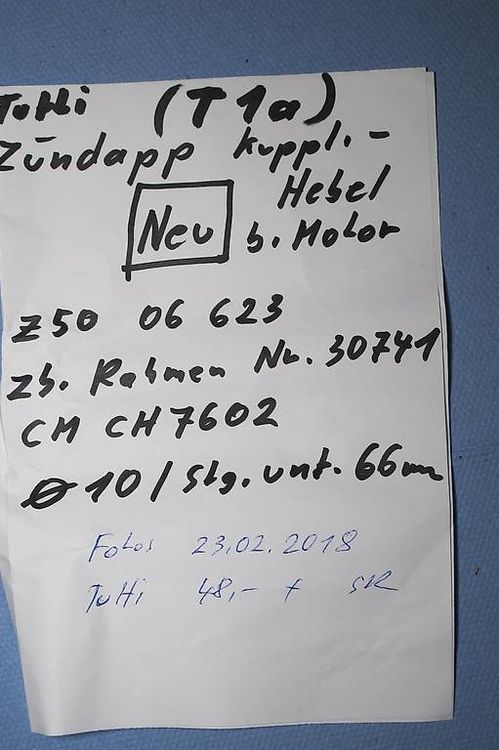 Tutti (T1a)
Zündapp Kuppl.-
Hebel
Neu b. Motor
Z50 06 623
zb. Rahmen Nr. 30741
CM CH7602
Ø 10 / Stg. unt. 66mm
Fotos 23.02.2018
Tutti 48,- +